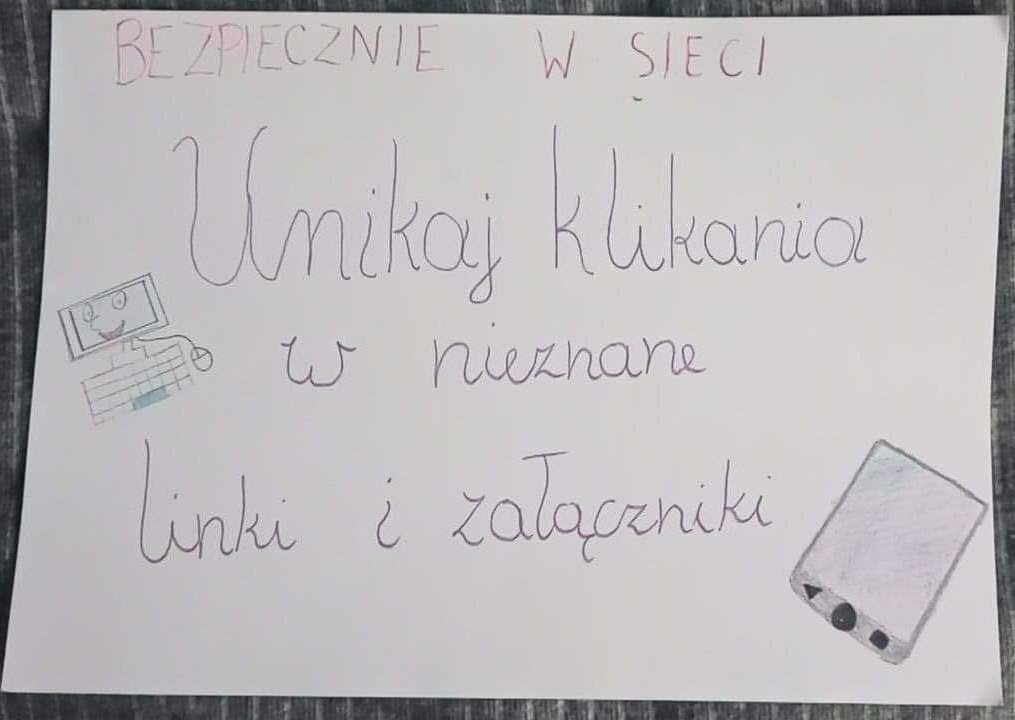 BEZPIECZNIE W SIECI
Unikaj klikania
w nieznane
linki i załączniki